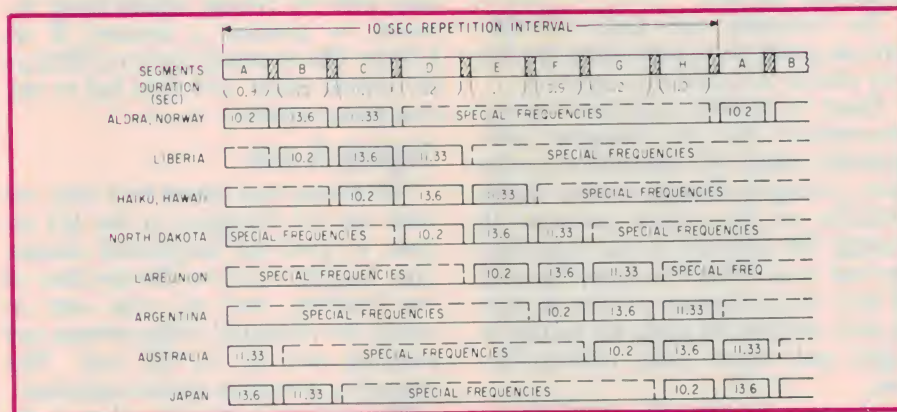 10 SEC REPETITION INTERVAL
SEGMENTS A B C D E F G H A B
DURATION (SEC)
ALDRA, NORWAY 10.2 13.6 11.33 SPECIAL FREQUENCIES 10.2
LIBERIA 10.2 13.6 11.33 SPECIAL FREQUENCIES
HAIKU, HAWAII 10.2 13.6 11.33 SPECIAL FREQUENCIES
NORTH DAKOTA SPECIAL FREQUENCIES 10.2 13.6 11.33 SPECIAL FREQUENCIES
LAREUNION SPECIAL FREQUENCIES 10.2 13.6 11.33 SPECIAL FREQ
ARGENTINA SPECIAL FREQUENCIES 10.2 13.6 11.33
AUSTRALIA 11.33 SPECIAL FREQUENCIES 10.2 13.6 11.33
JAPAN 13.6 11.33 SPECIAL FREQUENCIES 10.2 13.6